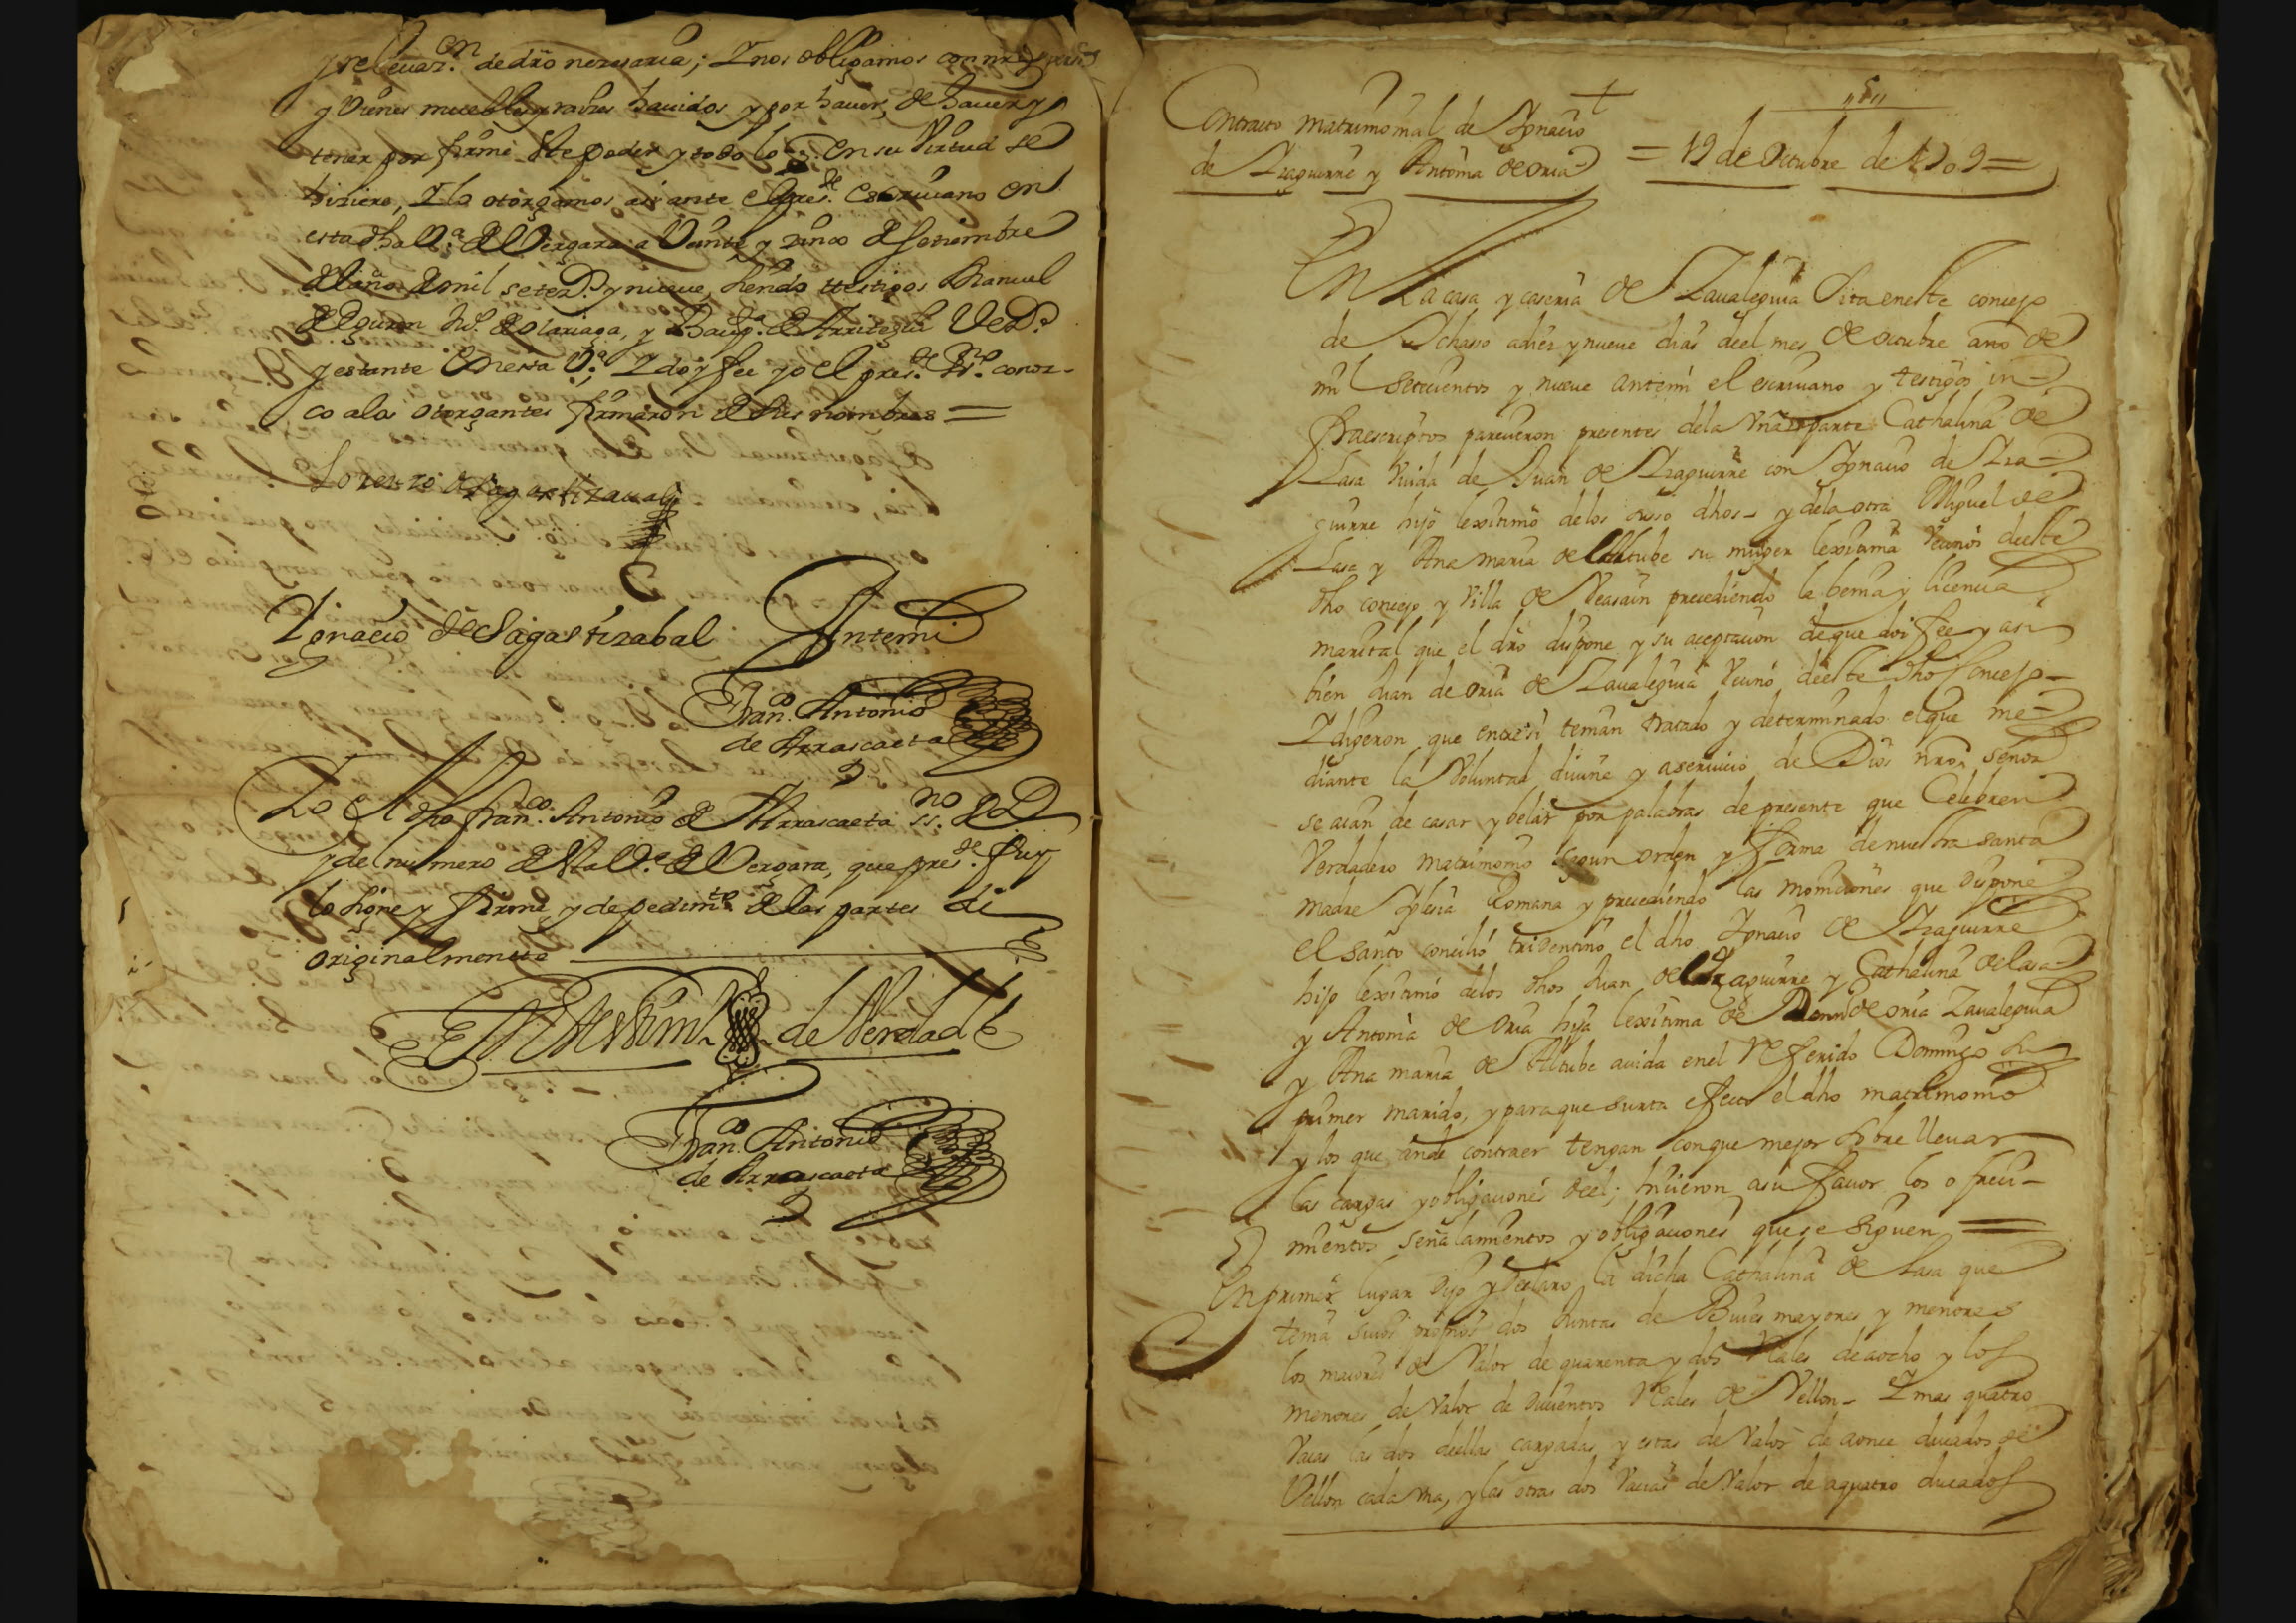 y relevaz.on de dro nezesaria; Y nos obligamos con nrãs perss.
y vienes muebles y raizes havidos y por haver, de haver y
tener por firme este poder y todo lo q. en su virtud se
hiziere, Y lo otorgamos assi ante el pres.te escrivano en
esta dha V.a de Vergara a Veinte y zinco de Setiembre
del año de mil setez.s y nueve, siendo testigos Manuel
de Eguren de olariaga, y Baup.ta de Arritegui Vez.s
y estante en esta V.a; Y doy fee yo el pres.te SS.no conoz-
co a los otorgantes firmaron de sus nombres =
Lorenzo de Sagastizaval
Ignacio de Sagastizabal Antemi
Fran.co Antonio
de Arrascaeta
Yo el dho Fran.co Antonio de Arrascaeta ss.no R.l
y del numero de esta V.a de Vergara, que pres.te fuy
lo signe y firme y de pedim.to de las partes di
originalmente
En testim.o de Verdad
Fran.co Antonio
de Arrascaeta
"5"
Contracto matrimonial de Ignacio
de Yzaguirre y Antonia de oria = 19 de Octubre de 1709 =
En La casa y caseria de Zavaleguia Sita en este concejo
de Ichasso a diez y nueve dias del mes de octubre año de
mil Setecientos y nueve antemi el escrivano y testigos in-
fraescriptos parecieron presentes dela Una parte Cathalina de
Lasa viuda de Juan de Yzaguirre con Ignacio de Yza-
guirre hijo lexitimo delos suso dhos - y dela otra Miguel de
Lasa y Ana maria de Altube su muger lexitima vecinos deeste
dho concejo y villa de Veasain precediendo la benia y licencia
marital que el dro dispone y su aceptacion de que doi fee y asi
bien Juan de oria de Zavaleguia vecino deeste dho Concejo -
Y digeron que entresi tenian tratado y determinado el que me-
diante la Voluntad divina y a servicio de Dios nro Señor
se aian de casar y belar por palabras de presente que Celebren
Verdadero matrimonio segun orden y forma de nuestra santa
madre Iglesia Romana y precediendo las moniciones que dispone
el santo concilio tridentino el dho Ignacio de Yzaguirre
hijo lexitimo delos dhos Juan de Yzaguirre y Cathalina de Lasa
y Antonia de oria hija lexitima de Domingo de oria Zavaleguia
y Ana maria de Altube avida en el referido Domingo su
primer marido, y para que surta efecto el dho matrimonio
y los que ande contraer tengan conque mejor sobre llevar
las cargas y obligaciones deel; hicieron a su favor los ofreci-
mientos señalamientos y obligaciones que se siguen =
En primer lugar dijo y declaro la dicha Cathalina de Lasa que
tenia suios propios dos Juntas de Bueies mayores y menores
los maiores de valor de quarenta y dos Reales de a ocho y los
menores de valor de ducientos Reales de Vellon - Y mas quatro
Vacas las dos deellas cargadas y estas de valor de a once ducados de
Vellon cada una, y las otras dos vacias de valor de a quatro ducados